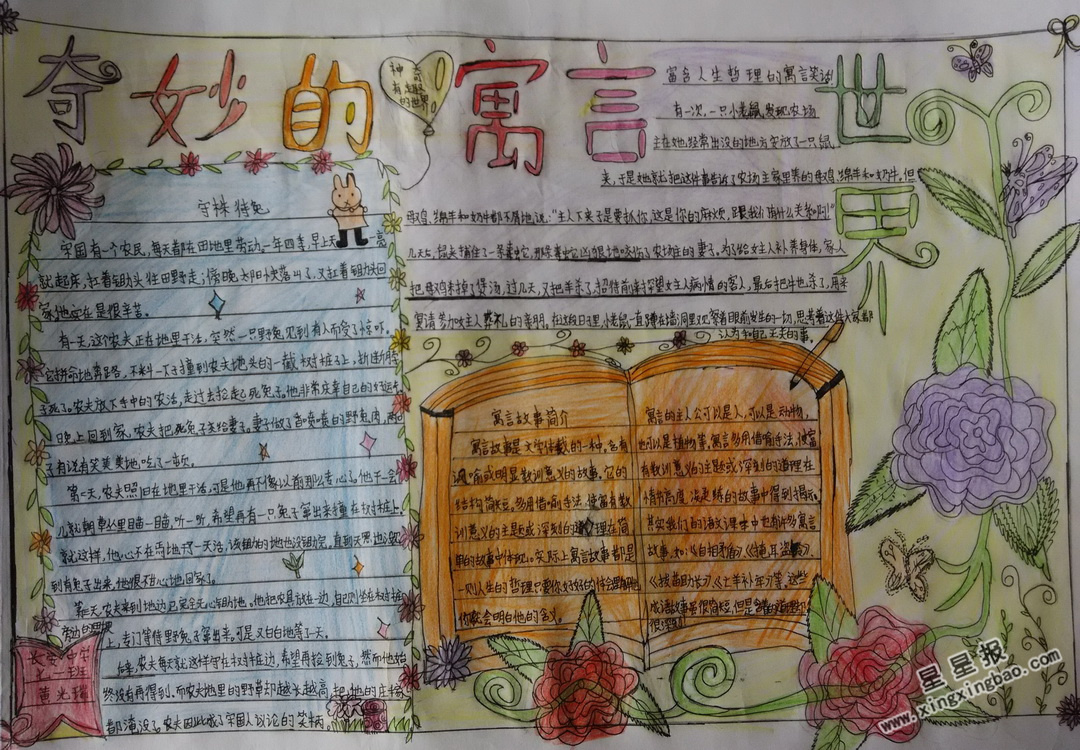 奇妙的寓言世界
神奇
有趣
的世界
富含人生哲理的寓言笑谈
有一次,一只小老鼠发现农场
主在她经常出没的地方安放了一只鼠
夹,于是她就把这件事告诉了农场主家里养的母鸡、绵羊和奶牛。但
母鸡、绵羊和奶牛都不屑地说:“主人下夹子是要抓你,这是你的麻烦,跟我们有什么关系啊!”
几天后,鼠夹捕住了一条毒蛇,那条毒蛇凶狠地咬伤了农场主的妻子。为了给女主人补养身体,家人
把母鸡杀掉了煲汤,过几天,又把羊杀了,招待前来探望女主人病情的客人,最后把牛也杀了,用来
宴请参加女主人葬礼的亲朋。在这段日子里,老鼠一直蹲在墙洞里,观察着眼前发生的一切,思考着这件大家都
认为和自己无关的事。
守株待兔
宋国有个农民,每天都在田地里劳动,一年四季,早上天一亮
就起床,扛着锄头往田野走;傍晚太阳快落山了,又扛着锄头回
家。他实在是很辛苦。
有一天,这个农夫正在地里干活,突然一只野兔见到有人而受了惊吓。
它拼命地奔跑,不料一下子撞到农夫地头的一截树桩子上,折断脖
子死了。农夫放下手中的农活,走过去捡起死兔子。他非常庆幸自己的好运气。
晚上回到家,农夫把死兔子交给妻子。妻子做了香喷喷的野兔肉,两口
子有说有笑美美地吃了一顿。
第二天,农夫照旧在地里干活,可是他再不像以前那么专心了。他干一会
儿就朝草丛里瞄一瞄,听一听,希望再有一只兔子窜出来撞在树桩上。
就这样,他心不在焉地干了一天活,该锄的地也没锄完。直到天黑也没见
到有兔子出来,他很不甘心地回家了。
第三天,农夫来到地边,已完全无心锄地。他把农具放在一边,自己则坐在树桩
旁边的田埂
上,专门等待野兔子窜出来。可是又白白地等了一天。
后来,农夫每天就这样守在树桩边,希望再捡到兔子,然而他始
终没有再得到。而农夫地里的野草却越长越高,把他的庄稼
都淹没了。农夫因此成了宋国人议论的笑柄。
寓言故事简介
寓言故事是文学体裁的一种。含有
讽喻或明显教训意义的故事。它的
结构简短,多用借喻手法,使富有教
训意义的主题或深刻的道理在简
单的故事中体现。实际上寓言故事都是
一则人生的哲理,只要你好好的体会那
你就会明白他的含义。
寓言的主人公可以是人,可以是动物,
也可以是植物等,寓言多用借喻手法,使富
有教训意义的主题或深刻的道理在
其实我们的语文课本中也有许多寓言
故事,如:《自相矛盾》、《掩耳盗铃》、
《拔苗助长》、《亡羊补牢》等,这些
成语故事虽很简短,但是含着的道理却
很深刻。
星星报
www.xingxingbao.com